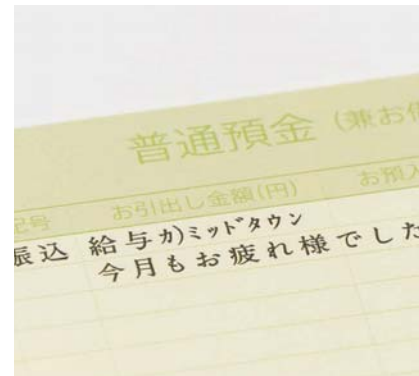 普通預金(兼お
記号 お引出し金額(円) お預入
振込 給与カ)ミッドタウン
今月もお疲れ様でした